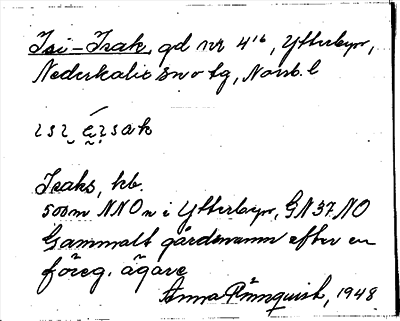 Isi-Isak, gd nr 4¹⁶, Ytterbyn,
Nederkalix sn o tg, Norrb. l
ısı̣ ı̣́ sak
Isaks, hb.
500 m NNO n i Ytterbyn, GN 37 NO
Gammalt gårdsnamn efter en
föreg. ägare
Anna Rönnquist, 1948